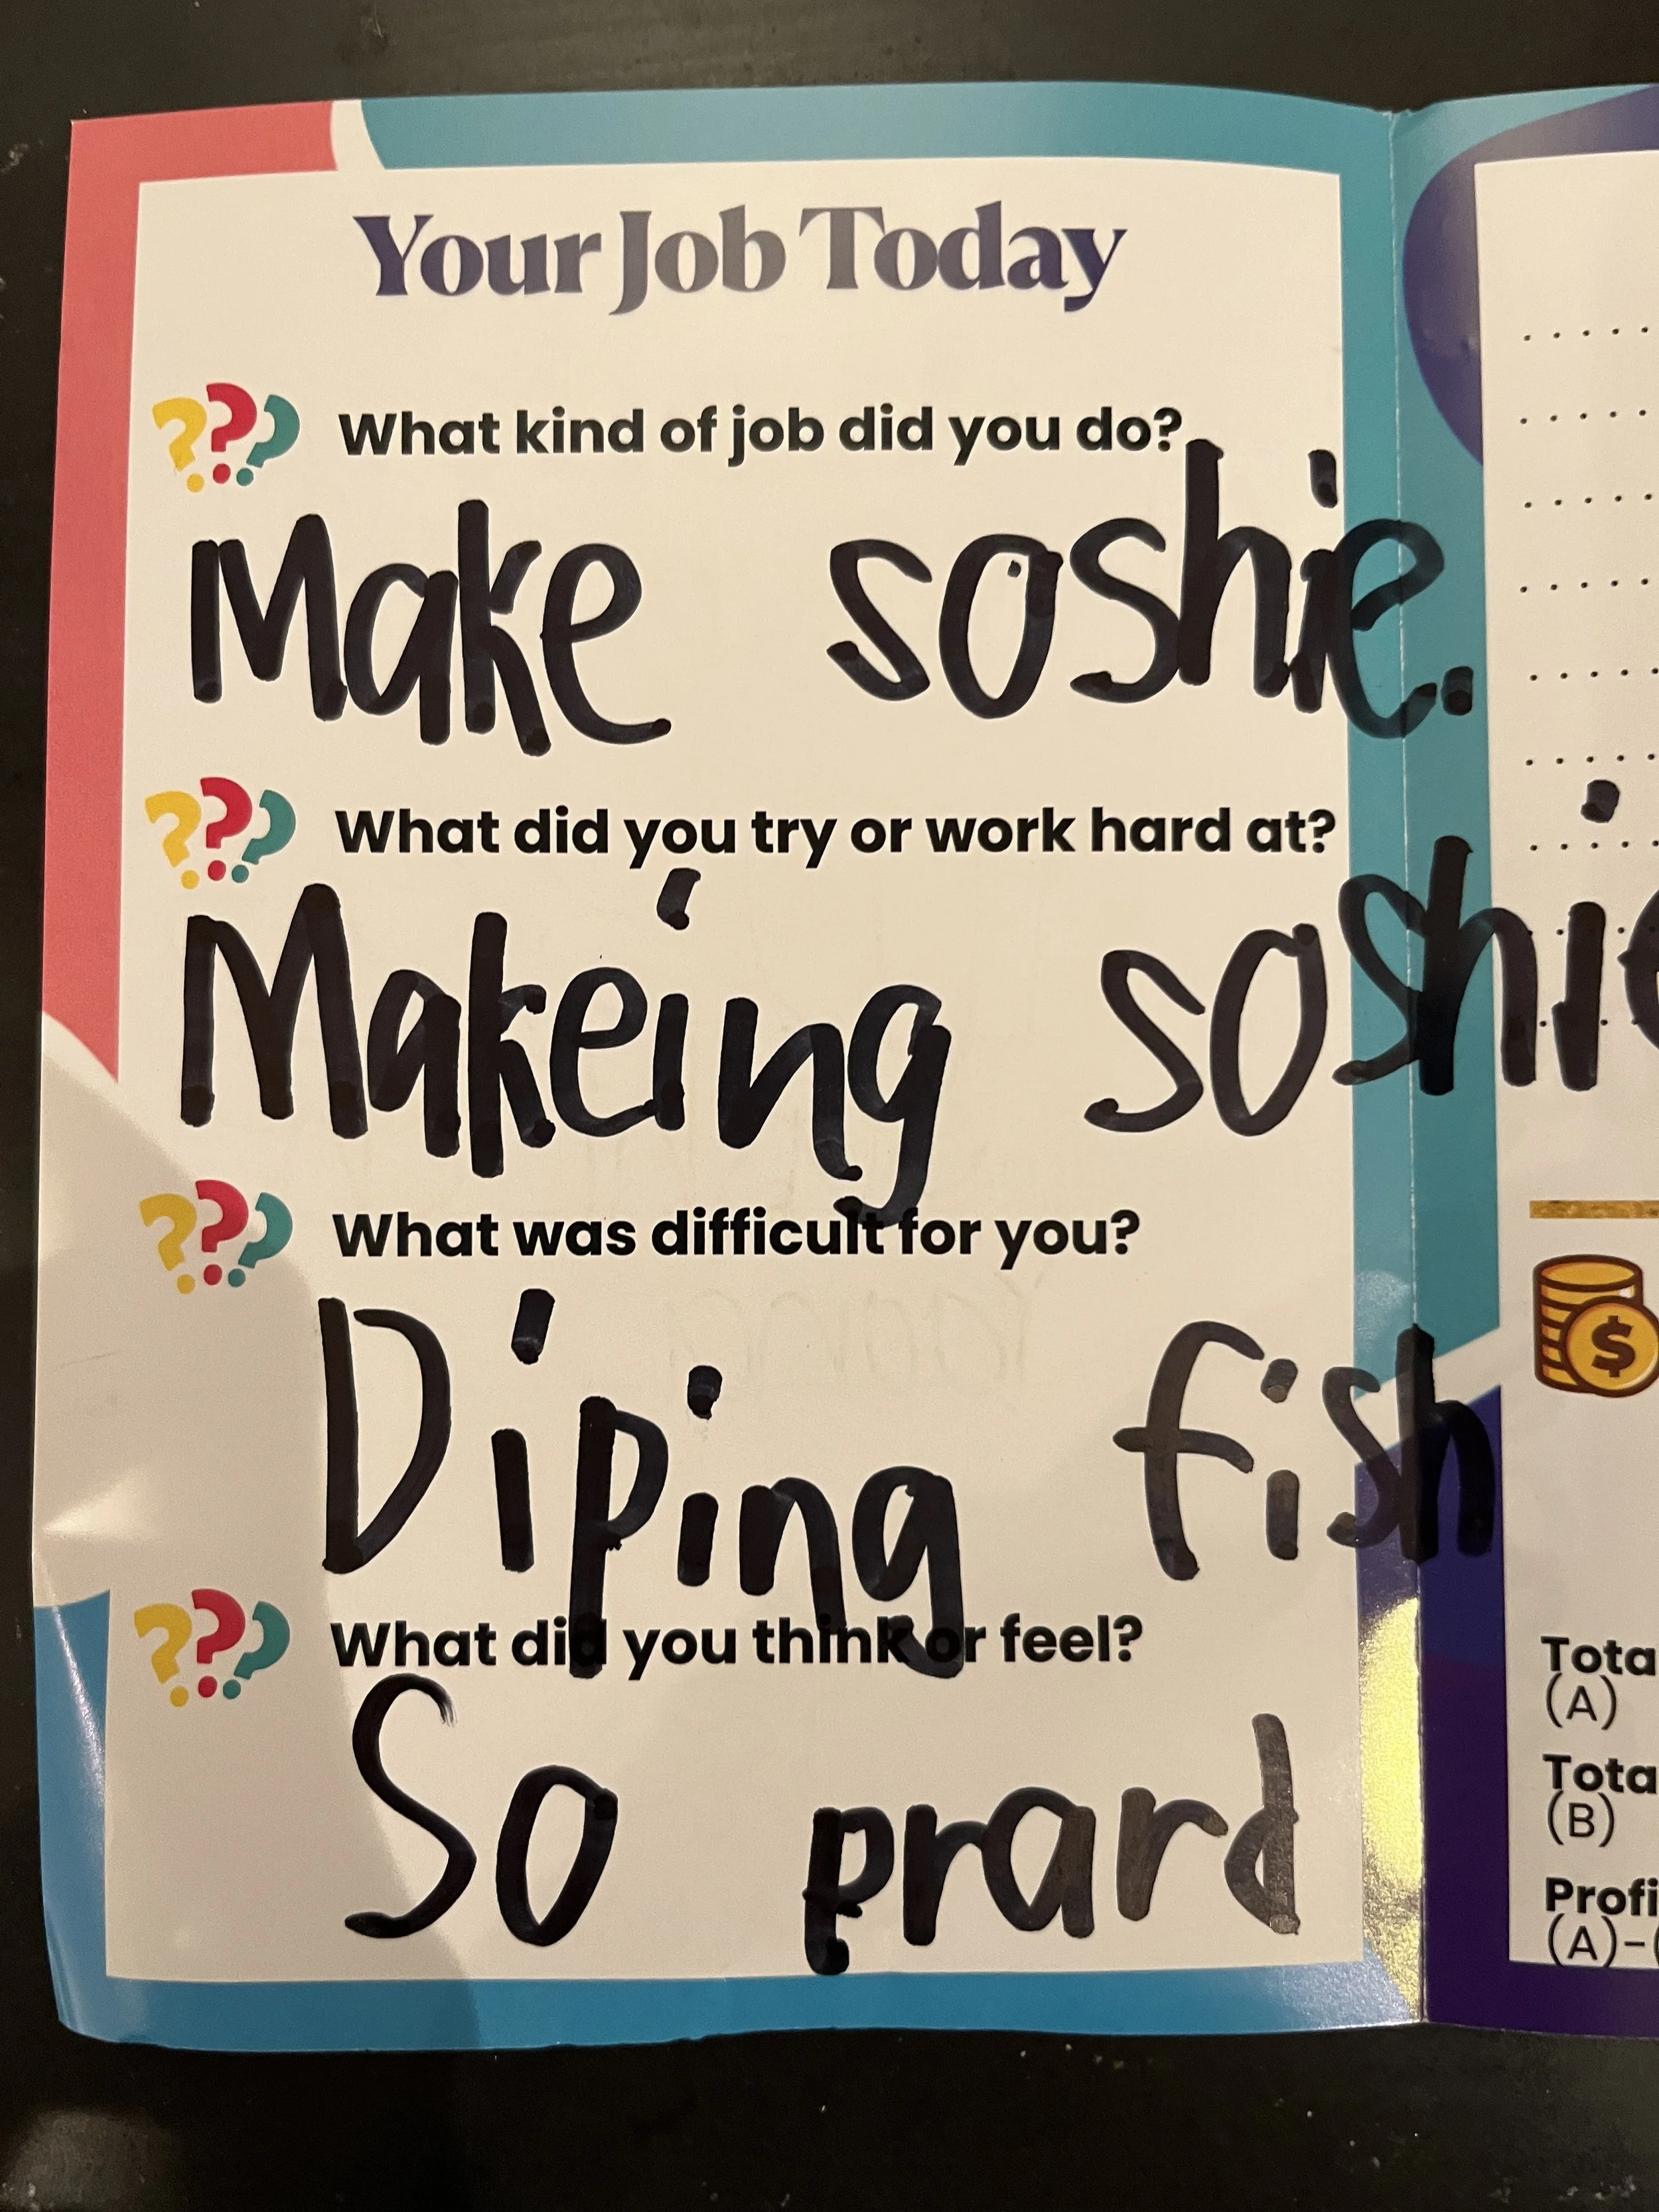 Your Job Today
??? What kind of job did you do?
Make soshie.
??? What did you try or work hard at?
Makeing soshie
??? What was difficult for you?
Diping fish
??? What did you think or feel?
So prard
$
Tota
(A)
Tota
(B)
Profi
(A)-(